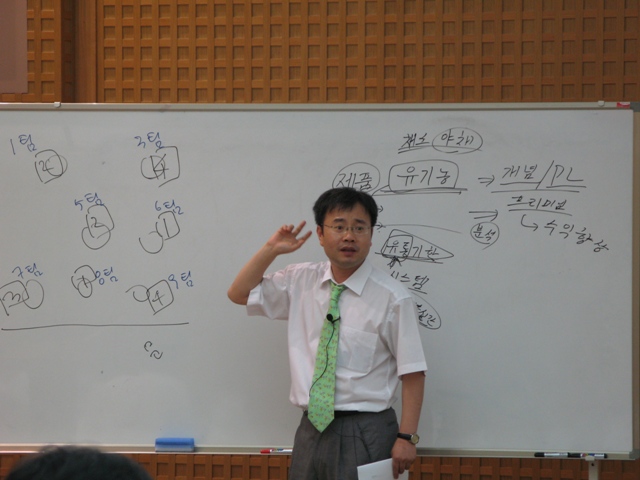 1팀
3팀
4
5팀
2
6팀
1
7팀
3
8팀
9팀
4
채소 야채
제품 유기농 → 개념/PL
프리미엄
분석 ↳ 수익향상
유통기한
시스템